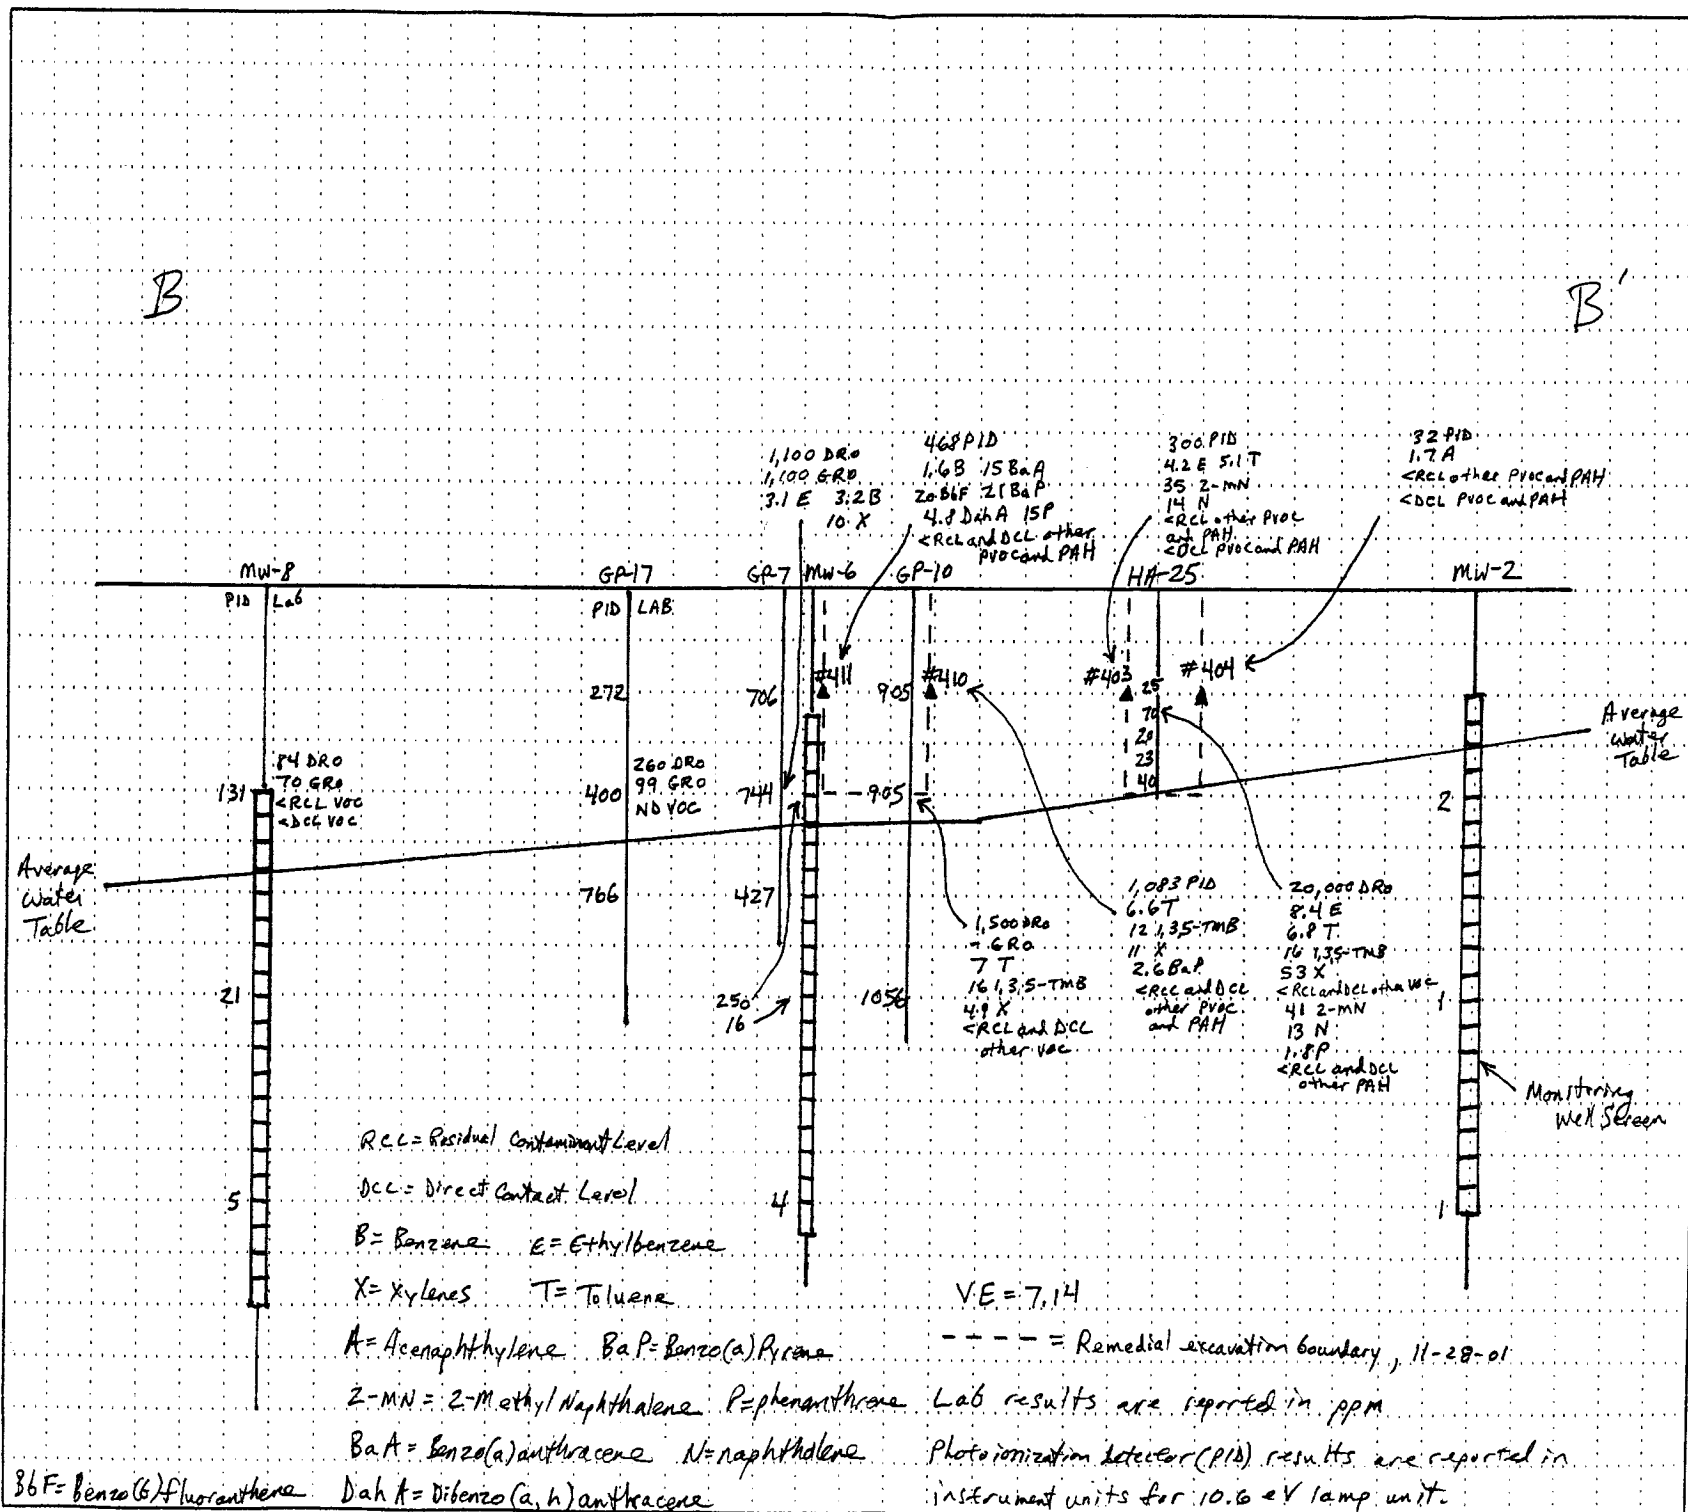 B
B'
1,100 DRO
1,100 GRO
3.1 E 3.2 B
10 X
468 PID
1.6 B 15 BaA
20 BbF 21 BaP
4.8 DahA 15 P
<RCL and DCL other
PVOC and PAH
300 PID
4.2 E 5.1 T
35 2-MN
14 N
<RCL other PVOC
and PAH
<DCL PVOC and PAH
32 PID
1.7 A
<RCL other PVOC and PAH
<DCL PVOC and PAH
MW-8
GP-17
GP-7
MW-6
GP-10
HA-25
MW-2
PID Lab
PID LAB
#411
#410
#403
#404
272
706
905
25
70
20
23
40
84 DRO
70 GRO
<RCL VOC
<DCL VOC
131
400
260 DRO
99 GRO
ND VOC
744
905
2
Average
Water
Table
Average
Water
Table
766
427
1,500 DRO
- GRO
7 T
16 1,3,5-TMB
49 X
<RCL and DCL
other VOC
1,083 PID
6.6 T
12 1,3,5-TMB
11 X
2.6 BaP
<RCL and DCL
other PVOC
and PAH
20,000 DRO
8.4 E
6.8 T
16 1,3,5-TMB
53 X
<RCL and DCL other VOC
41 2-MN
13 N
1.8 P
<RCL and DCL
other PAH
21
250
16
1056
1
Monitoring
Well Screen
5
4
1
RCL = Residual Contaminant Level
DCL = Direct Contact Level
B = Benzene E = Ethylbenzene
X = Xylenes T = Toluene
V.E = 7.14
A = Acenaphthylene BaP = Benzo(a)Pyrene
- - - - = Remedial excavation boundary, 11-28-01
2-MN = 2-Methyl Naphthalene P = phenanthrene
Lab results are reported in ppm
BaA = Benzo(a)anthracene N = naphthalene
Photoionization Detector (PID) results are reported in
BbF = Benzo(b)fluoranthene DahA = Dibenzo(a,h)anthracene
instrument units for 10.6 eV lamp unit.